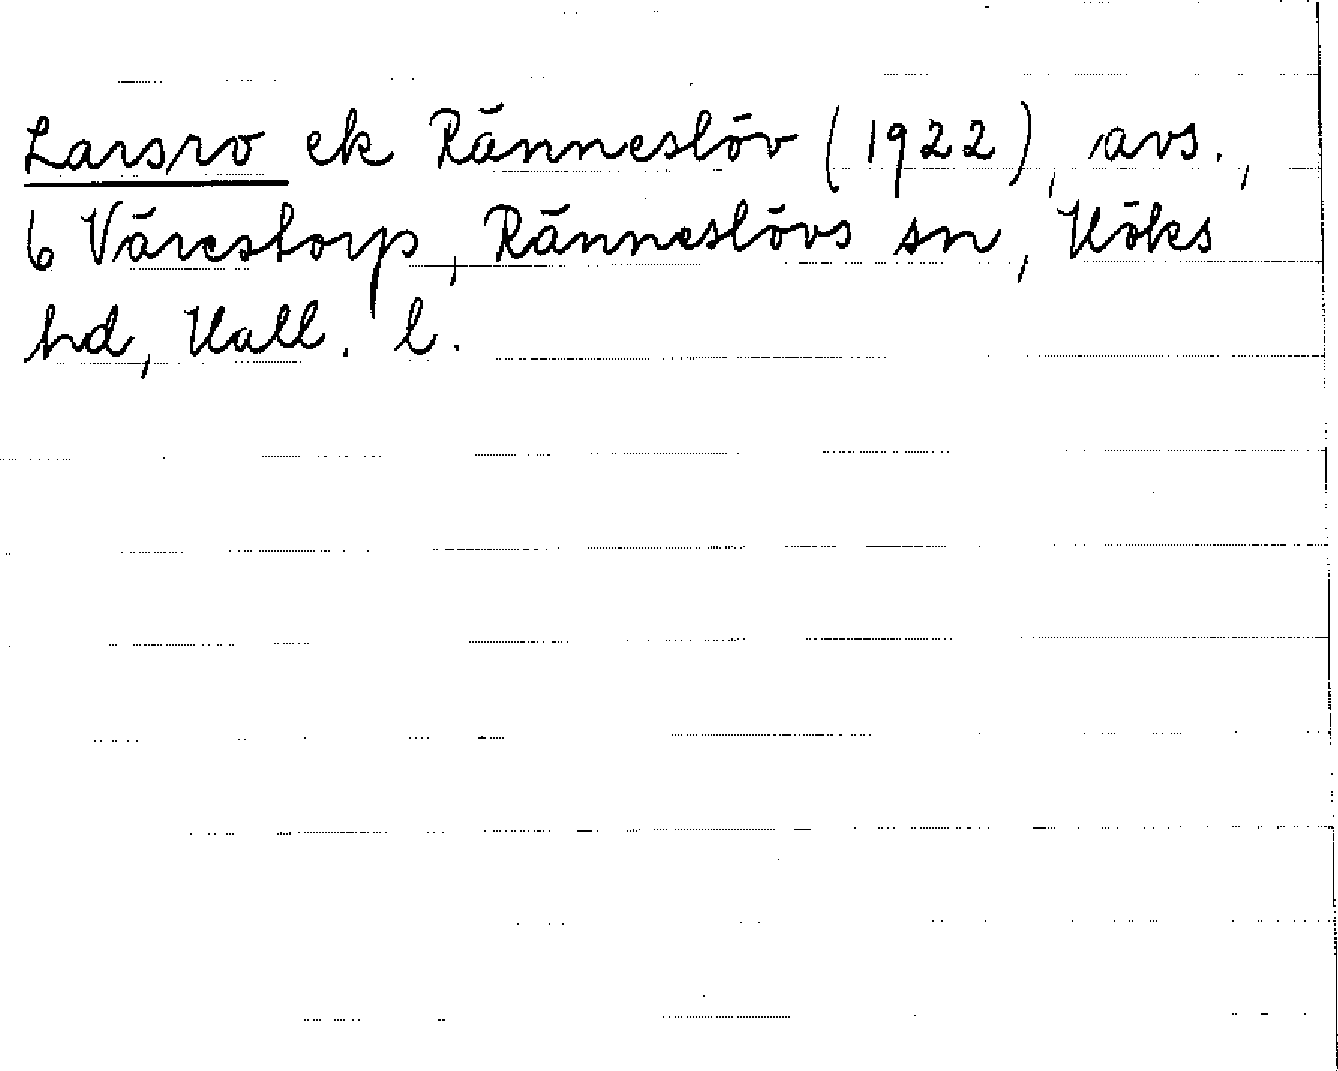 Larsro ek Ränneslöv (1922), avs.,
6 Vårestorp, Ränneslövs sn, Höks
hd, Hall. l.